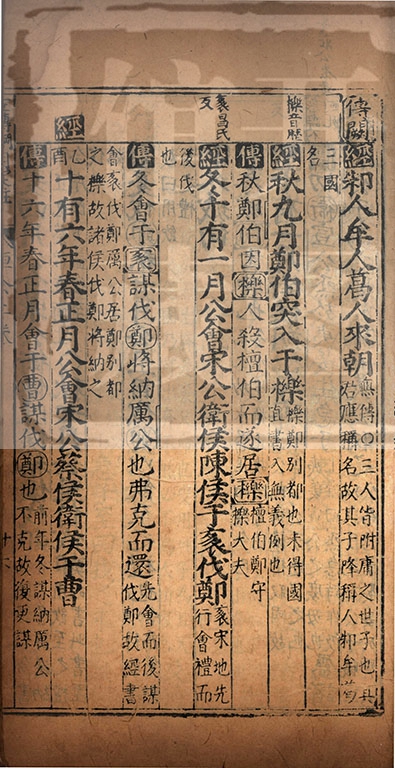 傳闕
經邾人牟人葛人來朝無傳○三人皆附庸之世子也其
君應稱名故其子降稱人邾牟葛
三國
名
櫟音歷
經秋九月鄭伯突入于櫟櫟鄭別都也未得國
直書入無義例也
傳秋鄭伯因櫟人殺檀伯而遂居櫟檀伯鄭守
櫟大夫
袲昌氏
反
經冬十有一月公會宋公衛侯陳侯于袲伐鄭袲宋地先
行會禮而
後伐
也
傳冬會于袲謀伐鄭將納厲公也弗克而還先會而後謀
伐鄭故經書
會袲伐厲公居鄭別都
之櫟故諸侯伐鄭將納之
經
乙
酉
十有六年春正月公會宋公蔡侯衛侯于曹
傳十六年春正月會于曹謀伐鄭也前年冬謀納厲公
不克故後更謀